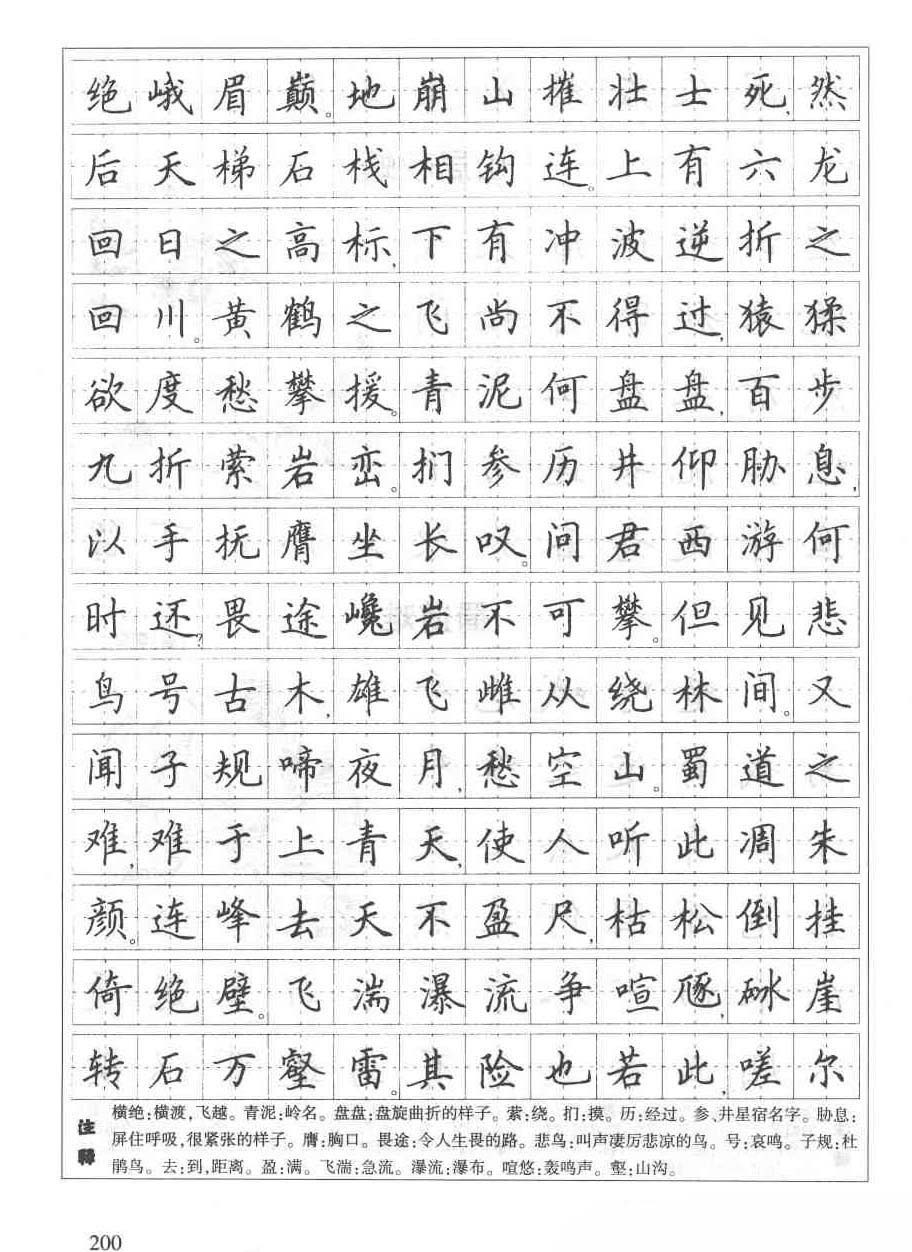 绝峨眉巅。地崩山摧壮士死,然
后天梯石栈相钩连。上有六龙
回日之高标,下有冲波逆折之
回川。黄鹤之飞尚不得过,猿猱
欲度愁攀援。青泥何盘盘,百步
九折萦岩峦。扪参历井仰胁息,
以手抚膺坐长叹。问君西游何
时还?畏途巉岩不可攀。但见悲
鸟号古木,雄飞雌从绕林间。又
闻子规啼夜月,愁空山。蜀道之
难,难于上青天,使人听此凋朱
颜。连峰去天不盈尺,枯松倒挂
倚绝壁。飞湍瀑流争喧豗,砯崖
转石万壑雷。其险也若此,嗟尔
注释
横绝:横渡,飞越。青泥:岭名。盘盘:盘旋曲折的样子。萦:绕。扪:摸。历:经过。参、井星宿名字。胁息:
屏住呼吸,很紧张的样子。膺:胸口。畏途:令人生畏的路。悲鸟:叫声凄厉悲凉的鸟。号:哀鸣。子规:杜
鹃鸟。去:到,距离。盈:满。飞湍:急流。瀑流:瀑布。喧悠:轰鸣声。壑:山沟。
200